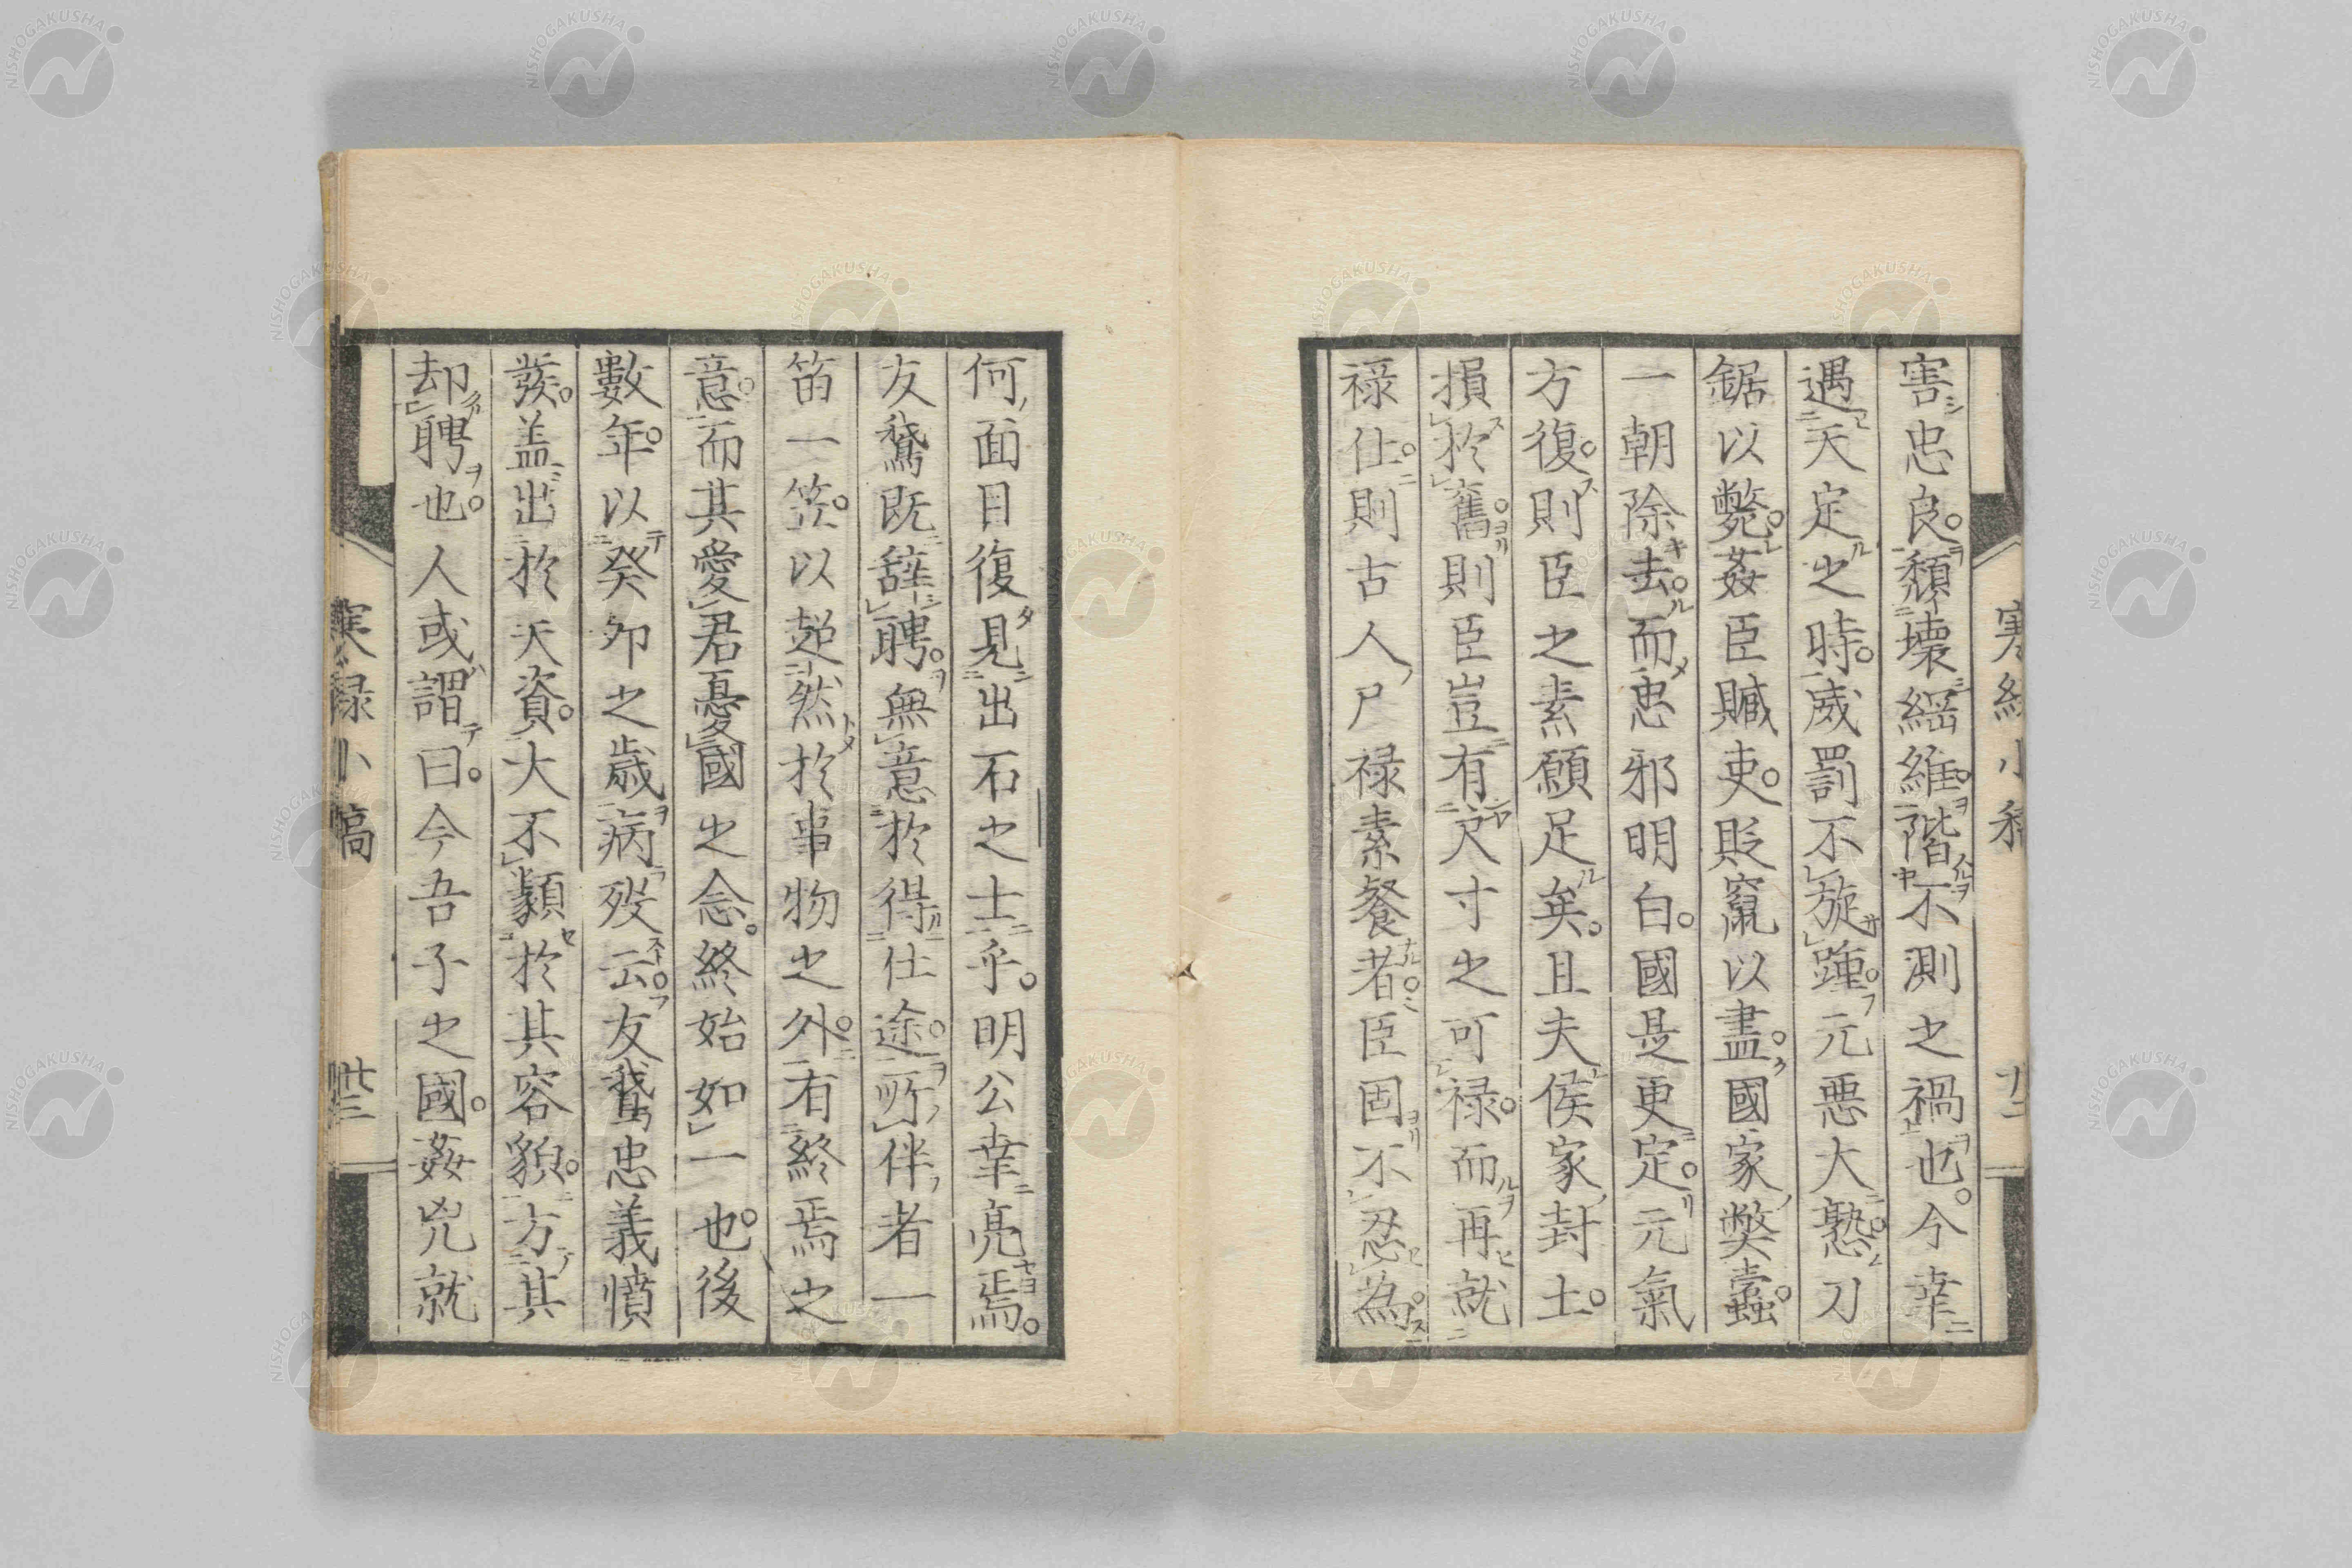 害忠良。頽壊綱維。階不測之禍也。今幸
遇天定之時。威罰不旋踵。元悪大憝。刀
鋸以斃。姦臣贓吏。貶竄以盡。國家弊蠹。
一朝除去。而忠邪明白。國是更定。元氣
方復。則臣之素願足矣。且夫侯家封土。
損於舊。則臣豈有尺寸之可禄。而再就
禄仕。則古人尸禄素餐者。臣固不忍為。
何面目復見出石之士乎。明公幸亮焉。
友鵞既辞聘。無意於得仕途。所伴者一
笛一笠。以超然於事物之外。有終焉之
意。而其愛君憂國之念。終始如一也。後
數年。以癸卯之歳病歿云。友鵞忠義憤
發。盖出於天資。大不類於其容貌。方其
却聘也。人或謂曰。今吾子之國。姦兇就
寒緑小稿
丗三
NISHOGAKUSHA